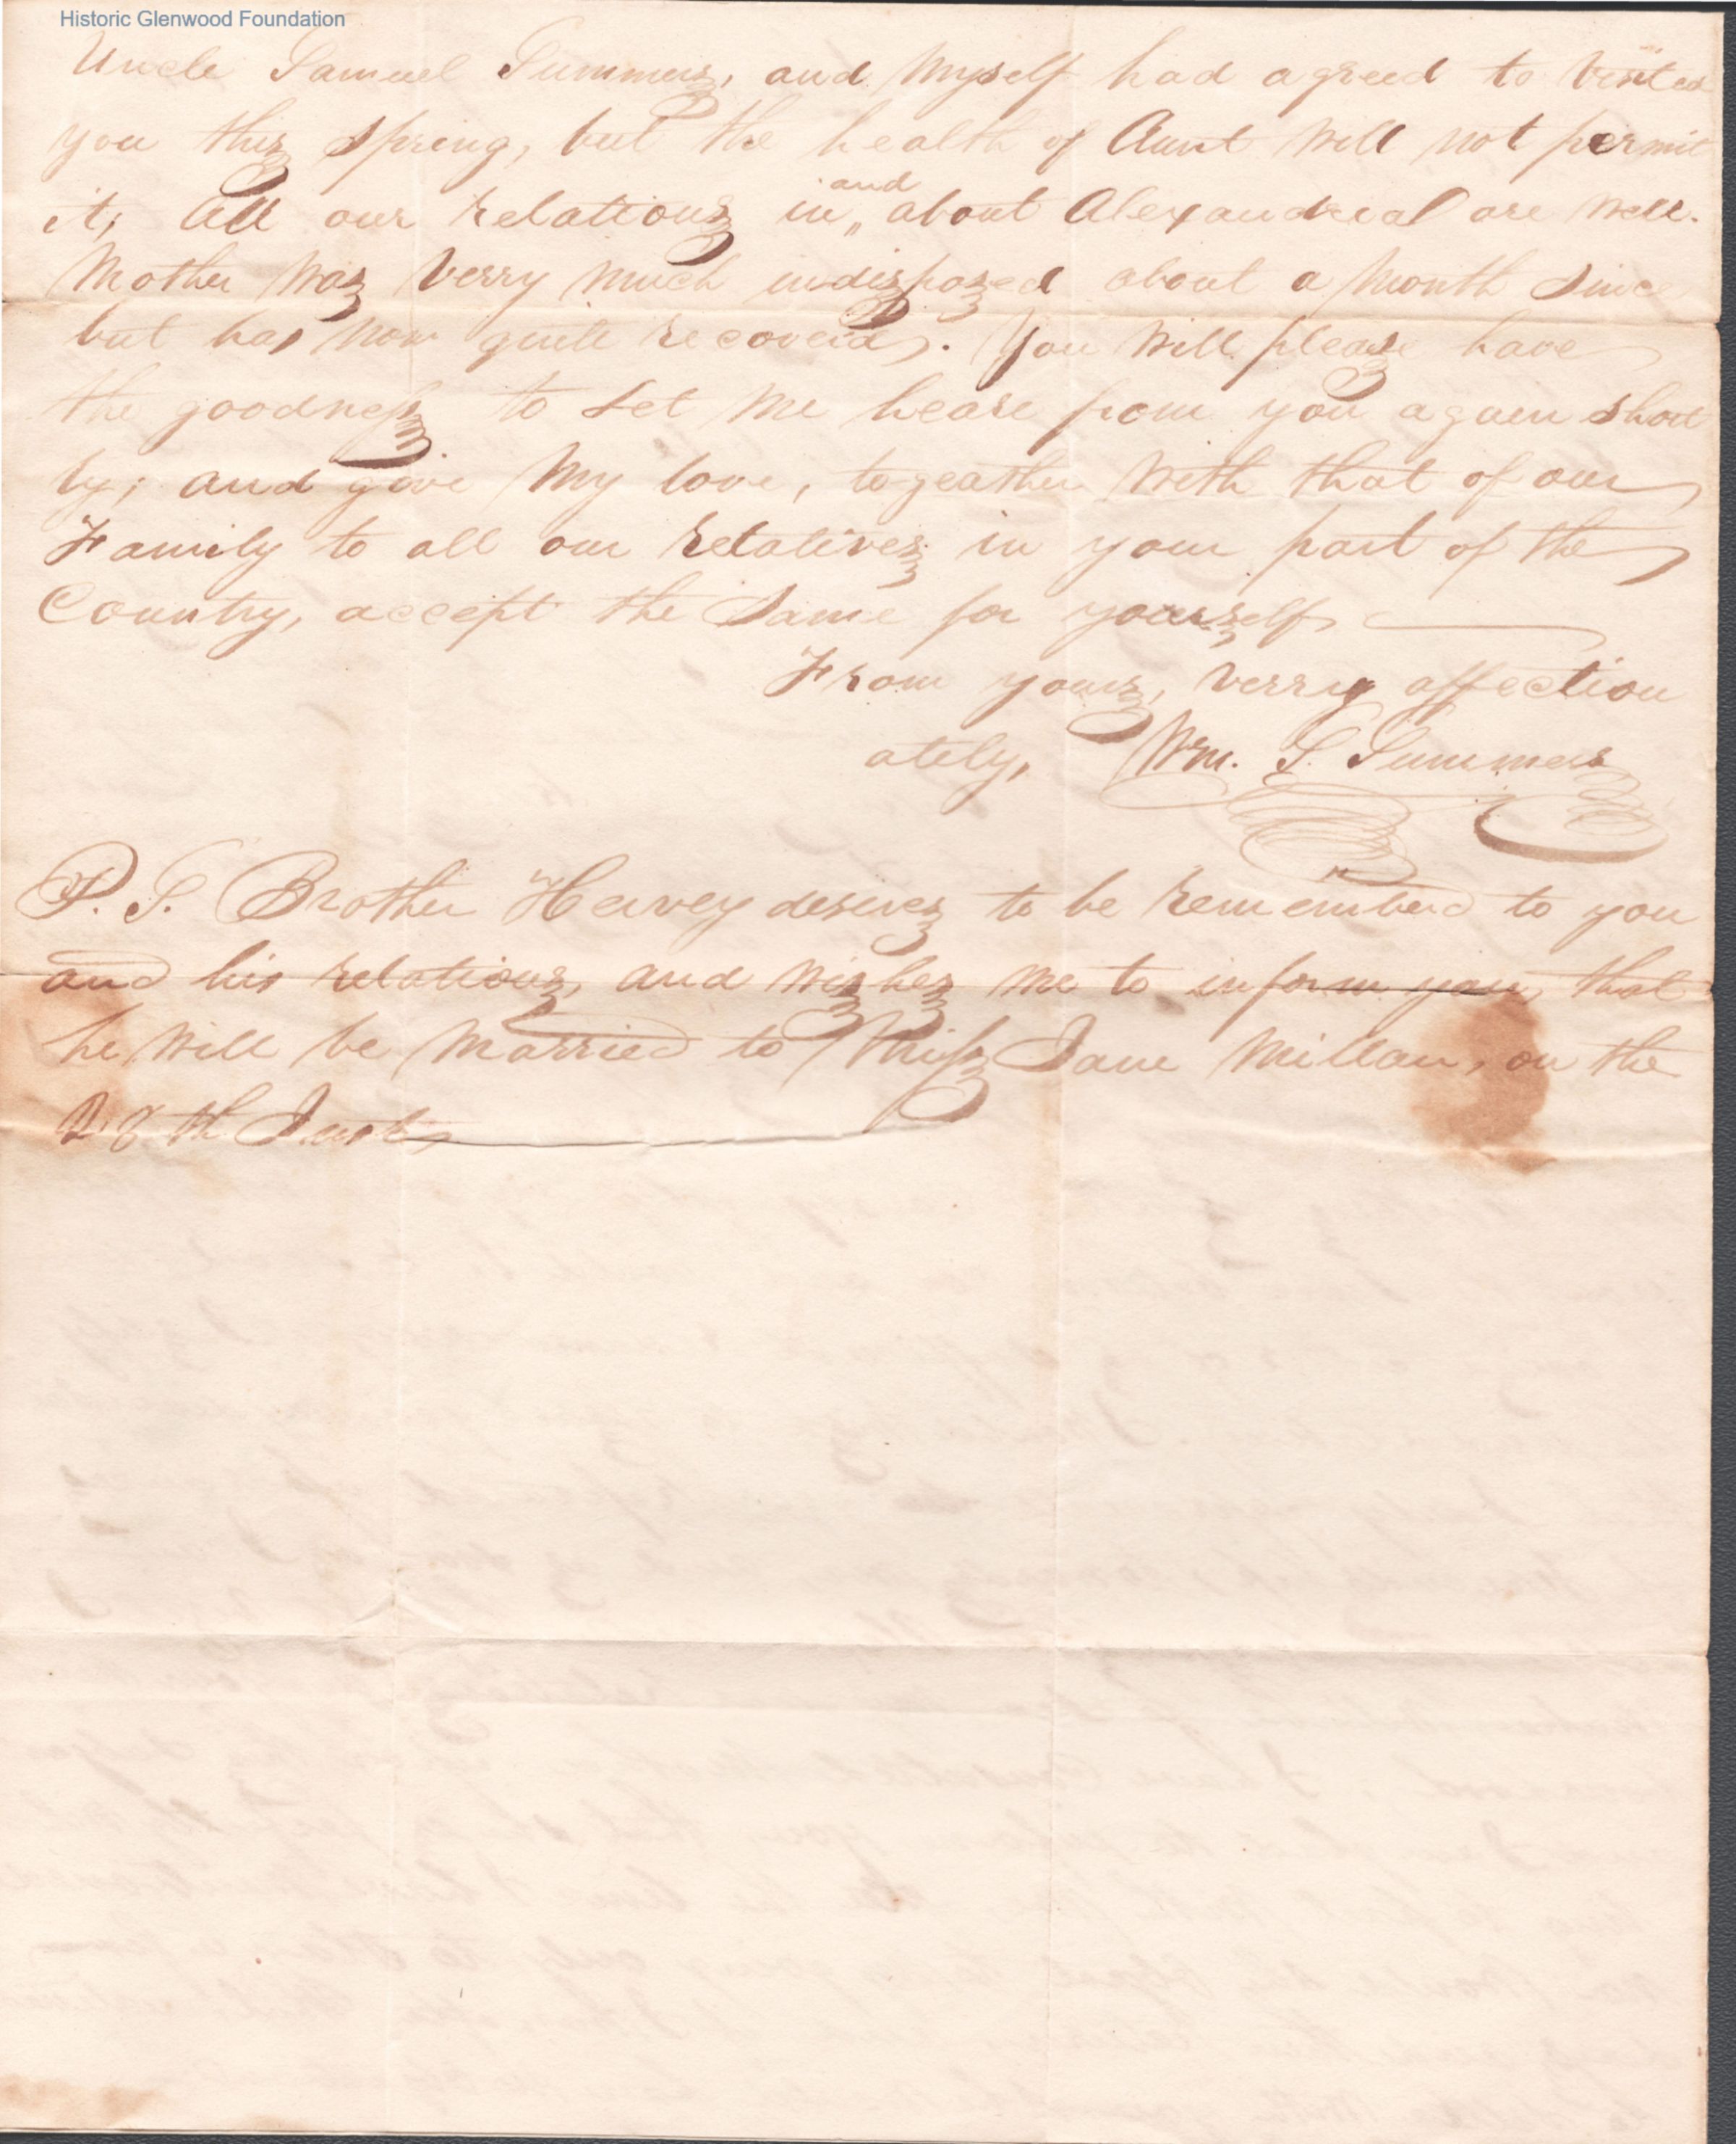 Historic Glenwood Foundation
Uncle Samuel Summers, and Myself had agreed to Visited
you this Spring, but the health of Aunt Will Not permit
it, All our relations in and about Alexandrial are Well.
Mother Was Verry Much indisposed about a Month Since
but has Now quite recoverd. You Will please have
the goodness to Let Me heare from you again Short
ly; and give My love, togeather With that of our
Family to all our Relatives in your part of the
Country, accept the Same for yourself
From yours, verry affection
ately, Wm. S. Summers
P. S. Brother Hervey desires to be Rememberd to you
and his relations, and Wishes Me to inform you, that
he Will be Married to Miss Jane Millan, on the
28th Inst